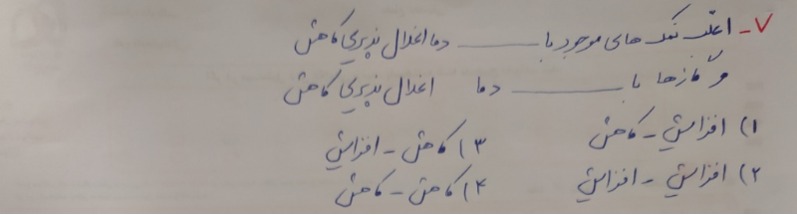 ۷- اغلب نمک های موجود با ــــــــ دما انحلال پذیری کاهش
و گازها با ــــــــ دما انحلال پذیری کاهش
۱) افزایش - کاهش
۳) کاهش - افزایش
۲) افزایش - افزایش
۴) کاهش - کاهش